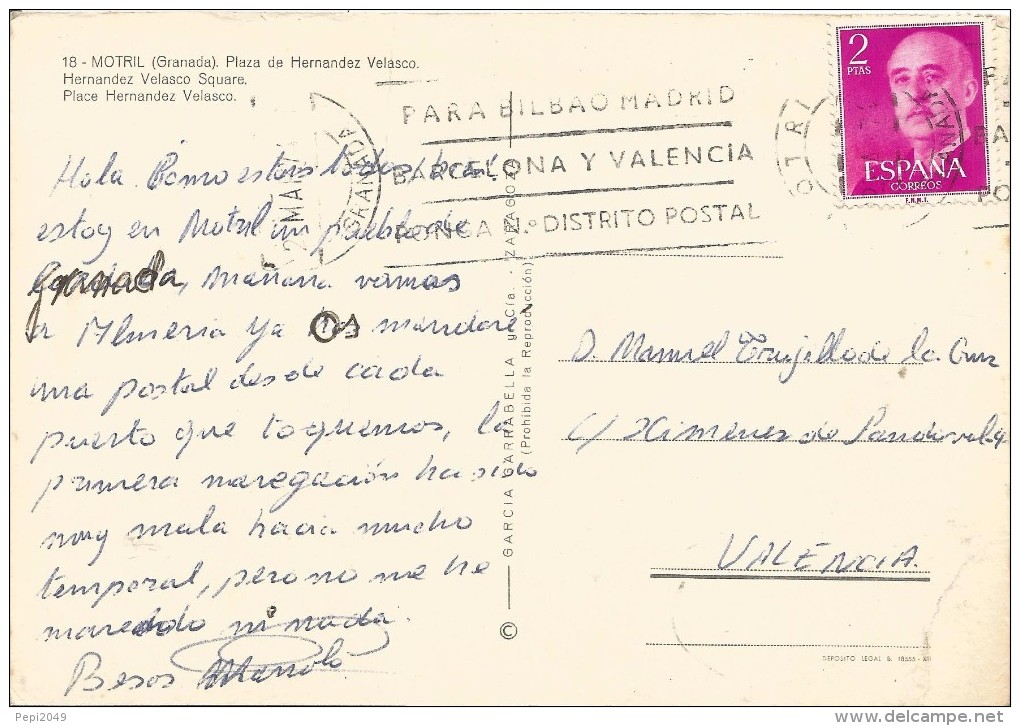 18 - MOTRIL (Granada). Plaza de Hernandez Velasco.
Hernandez Velasco Square.
Place Hernandez Velasco.
Hola. Cómo estais todos,
estoy en Motril un pueblo de
Granada, mañana vamos
a Almeria ya os mandaré
una postal desde cada
puerto que toquemos, la
primera navegación ha sido
muy mala hacia mucho
temporal, pero no me he
mareado ni nada.
Besos Manolo
GARCIA GARRABELLA y Cía. - ZARAGOZA
(Prohibida la Reproducción)
©
PARA BILBAO MADRID
BARCELONA Y VALENCIA
PONGA N.º DISTRITO POSTAL
GRANADA
2 PTAS
ESPAÑA
CORREOS
F.N.M.T.
D. Manuel Trujillo de la Cruz
C/ Ximenez de Sandoval 9
VALENCIA.
DEPOSITO LEGAL B. 18555 - XII
Pepi2049
delcampe.net